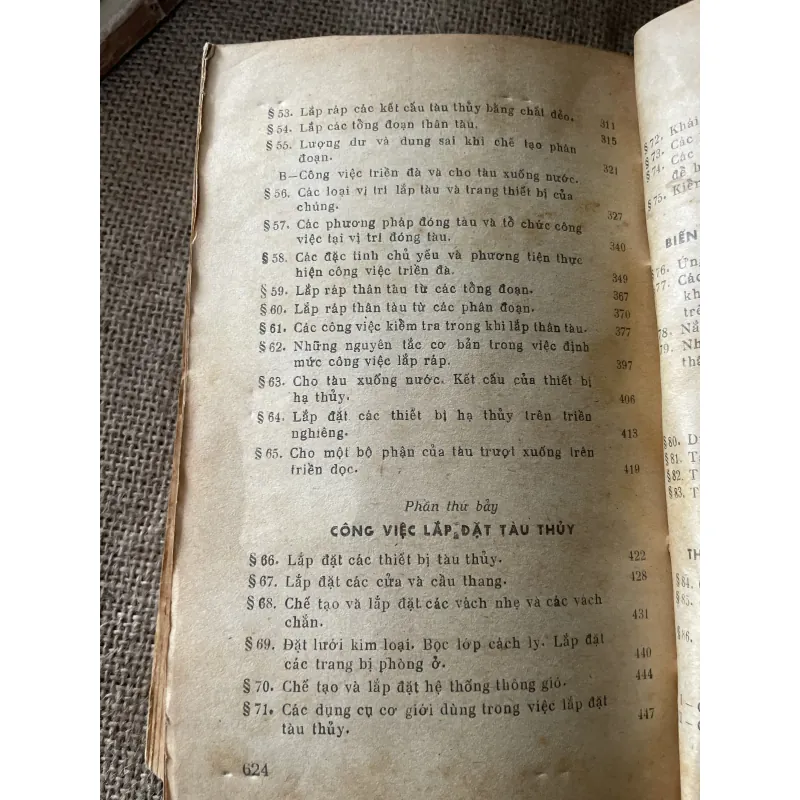 § 53. Lắp ráp các kết cấu tàu thủy bằng chất dẻo. 311
§ 54. Lắp các tổng đoạn thân tàu. 315
§ 55. Lượng dư và dung sai khi chế tạo phân
đoạn. 321
B—Công việc triền đà và cho tàu xuống nước.
§ 56. Các loại vị trí lắp tàu và trang thiết bị của
chúng. 327
§ 57. Các phương pháp đóng tàu và tổ chức công
việc tại vị trí đóng tàu. 340
§ 58. Các đặc tính chủ yếu và phương tiện thực
hiện công việc triền đà. 349
§ 59. Lắp ráp thân tàu từ các tổng đoạn. 367
§ 60. Lắp ráp thân tàu từ các phân đoạn. 370
§ 61. Các công việc kiểm tra trong khi lắp thân tàu. 377
§ 62. Những nguyên tắc cơ bản trong việc định
mức công việc lắp ráp. 397
§ 63. Cho tàu xuống nước. Kết cấu của thiết bị
hạ thủy. 406
§ 64. Lắp đặt các thiết bị hạ thủy trên triền
nghiêng. 413
§ 65. Cho một bộ phận của tàu trượt xuống trên
triền dọc. 419
Phần thứ bảy
CÔNG VIỆC LẮP ĐẶT TÀU THỦY
§ 66. Lắp đặt các thiết bị tàu thủy. 422
§ 67. Lắp đặt các cửa và cầu thang. 428
§ 68. Chế tạo và lắp đặt các vách nhẹ và các vách
chắn. 431
§ 69. Đặt lưới kim loại. Bọc lớp cách ly. Lắp đặt
các trang bị phòng ở. 440
§ 70. Chế tạo và lắp đặt hệ thống thông gió. 444
§ 71. Các dụng cụ cơ giới dùng trong việc lắp đặt
tàu thủy. 447
624
§ 72. Khái
§ 73. Các
§ 74. Các
để b
§ 75. Kiểm
BIẾN
§ 76. Ứn
77. Các
kh
trê
78. Nắ
79. Nh
thậ
§ 80. D
§ 81. T
§ 82. T
§ 83. T
TH
§ 84.
§ 85.
§ 86.